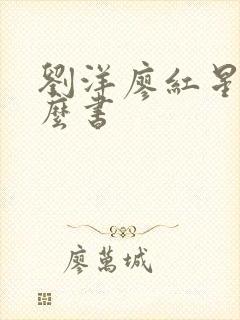 劉洋廖紅星
麼書
廖萬城